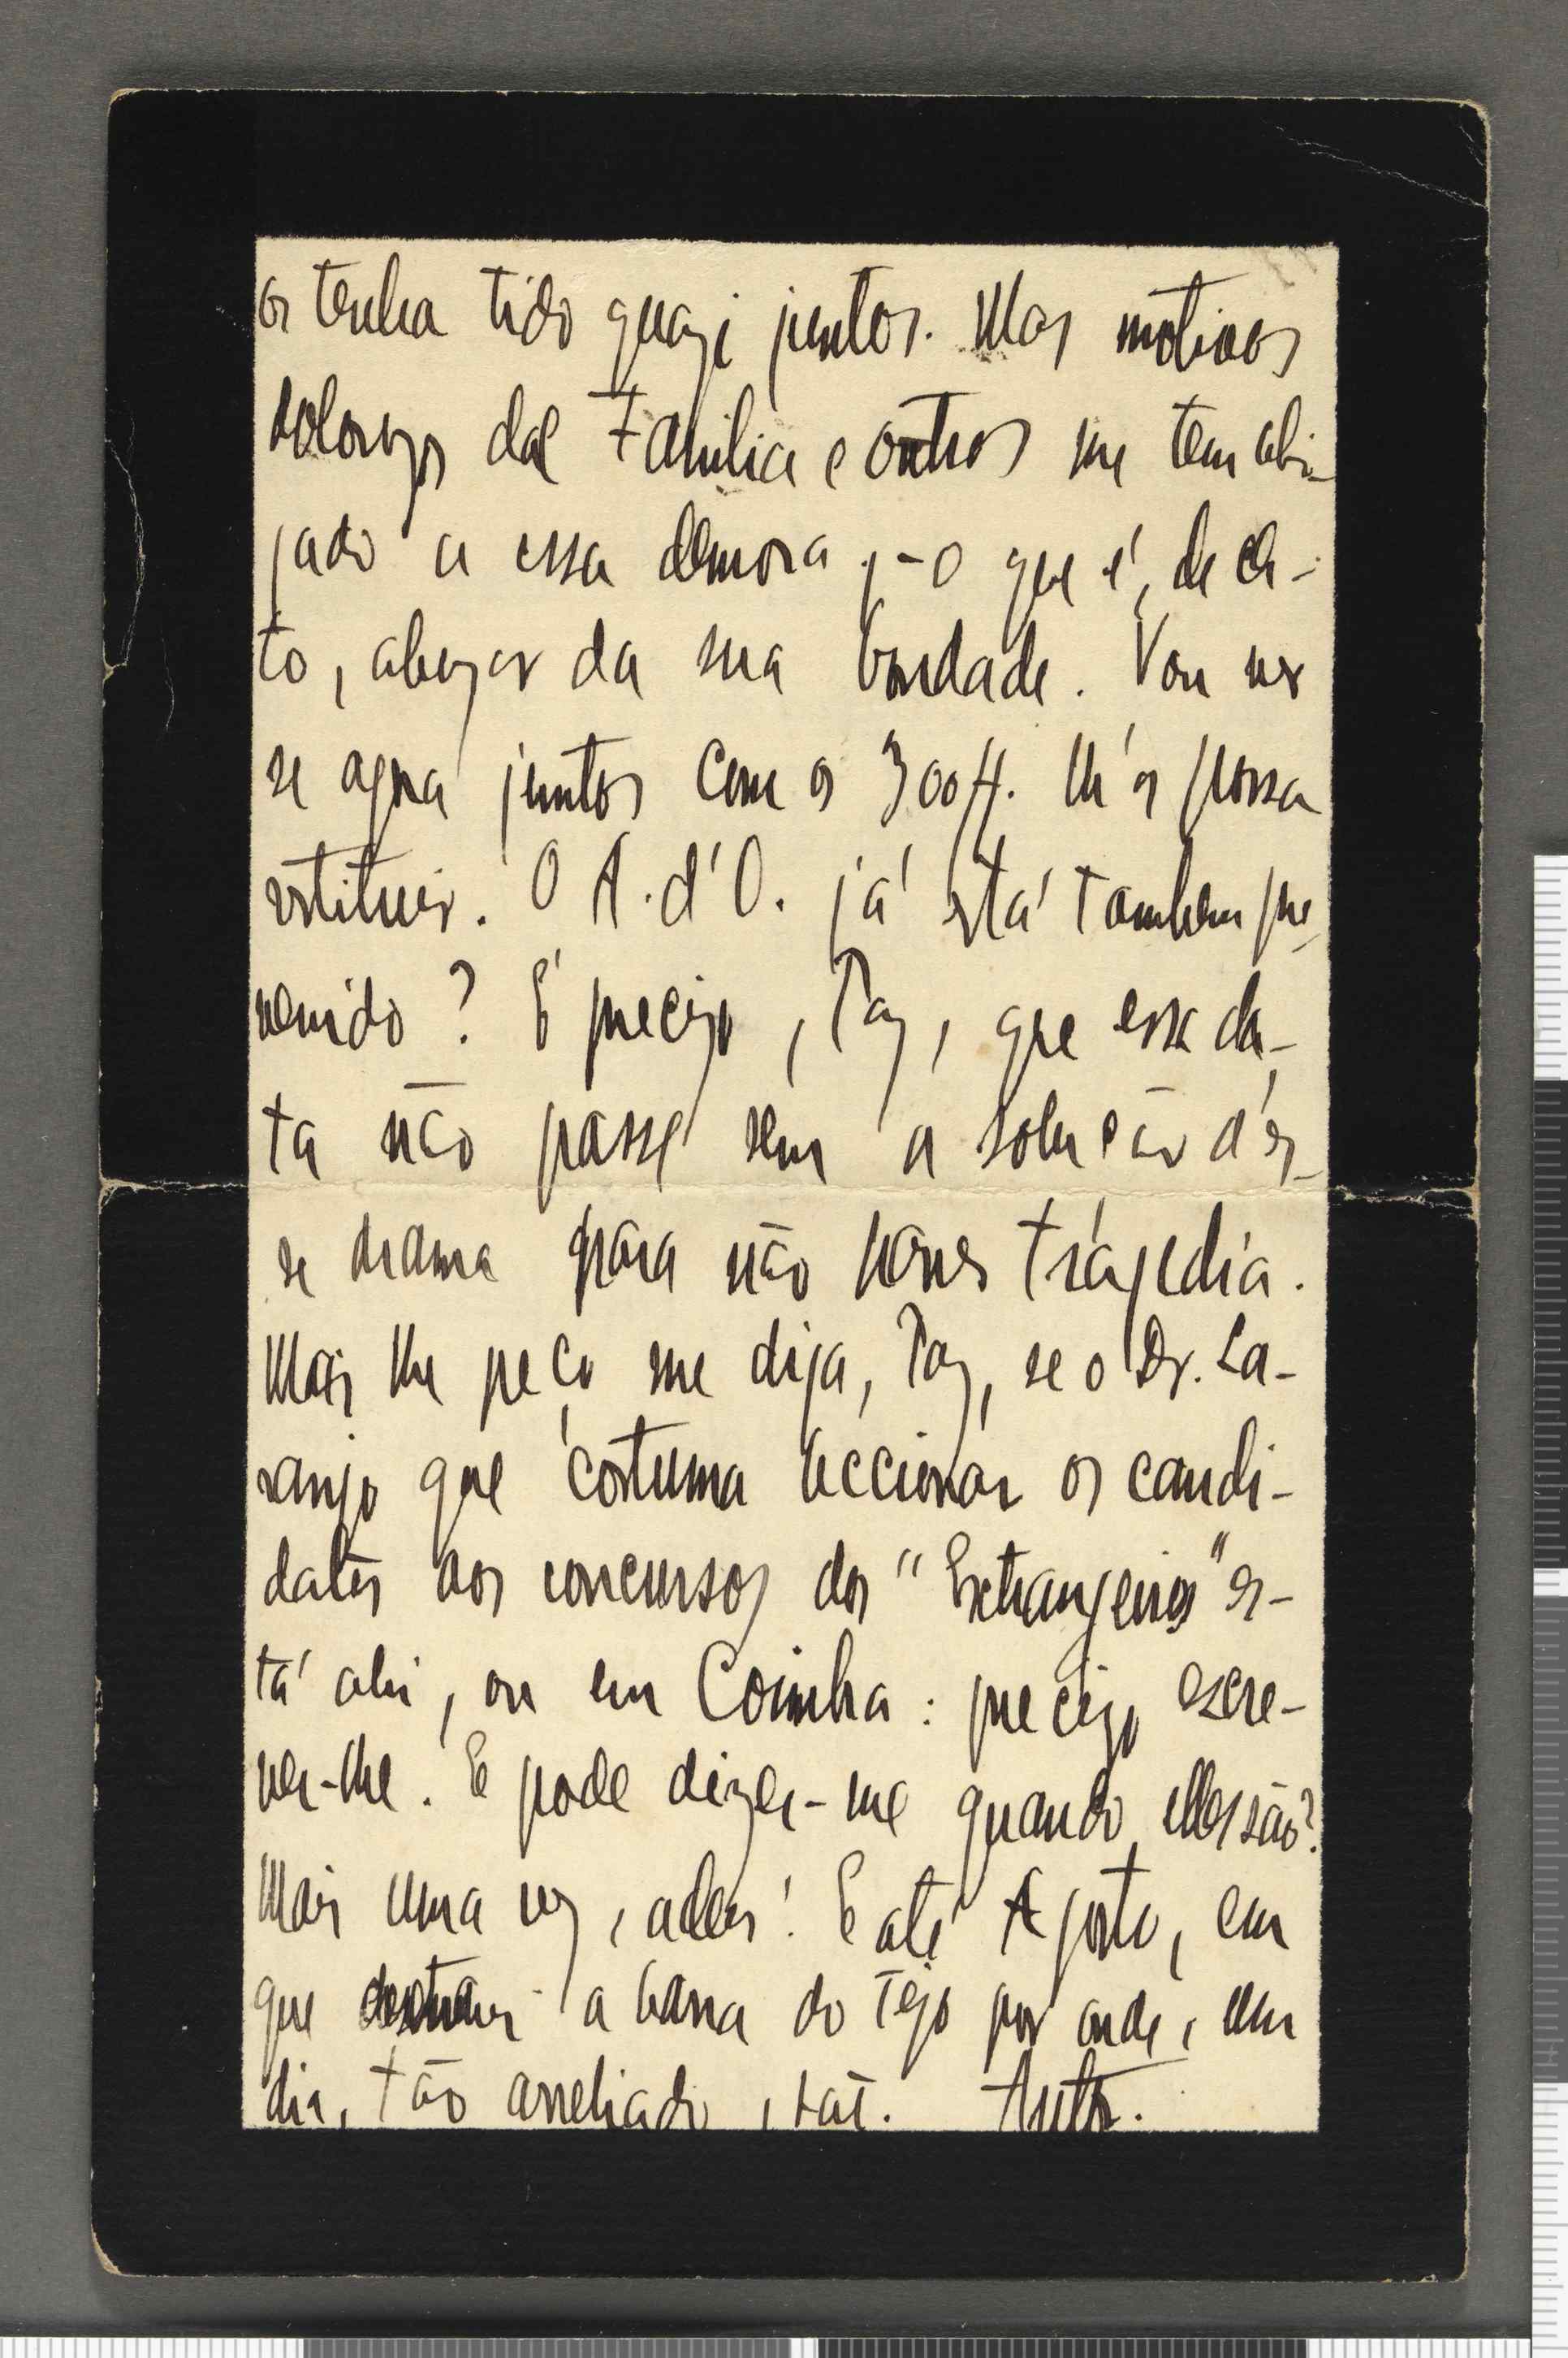 os tenha tido quazi juntos. Mas motivos
dolorozos de Familia e outros me tem obri-
gado a essa demora, - o que é, de cer-
to, abuzar da sua bondade. Vou ver
se agora juntos com os 300 ff. lh'os possa
restituir. O A. d'O. já está tambem pre-
venido? É precizo, Paz, que essa da-
ta não passe sem a solução d'es-
se drama para não haver tragedia.
Mais lhe peço me diga, Paz, se o Dr. La-
ranjo que costuma leccionar os candi-
datos aos concursos dos "Extrangeiros" es-
tá ahi, ou em Coimbra: precizo escre-
ver-lhe. E pode dizer-me quando elles são?
Mais uma vez, adeus! E até Agosto, em
que a barra do Tejo por onde, um
dia, tão arreliado, sai. Anto.